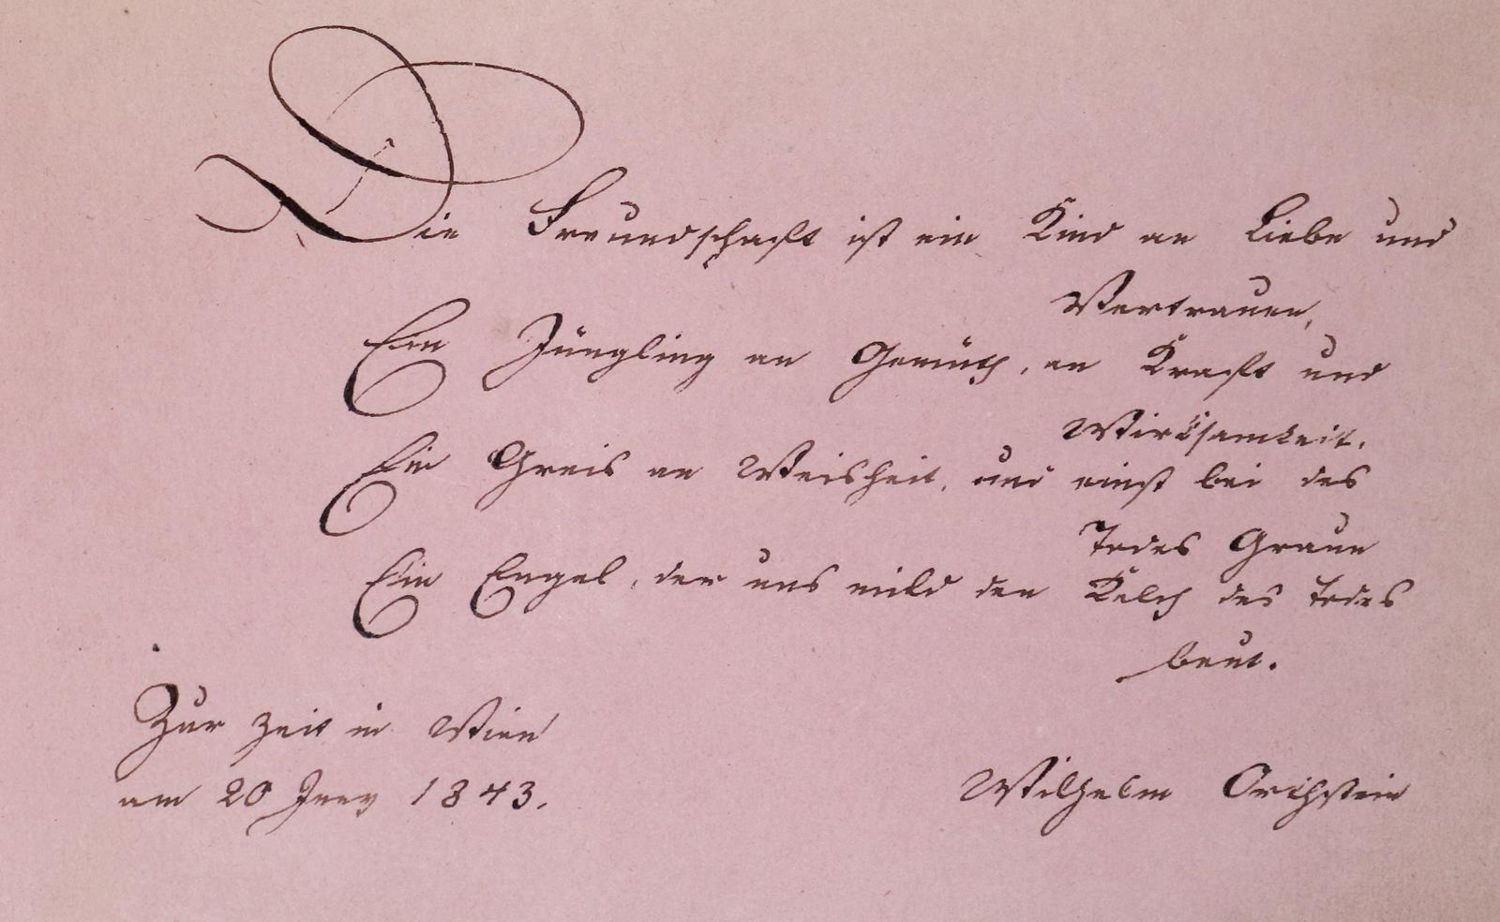 Die Freundschaft ist ein Kind an Liebe und
Vertrauen,
Ein Jüngling an Gemüth, an Kraft und
Wirksamkeit,
Ein Greis an Weisheit, und einst bei des
Todes Graun
Ein Engel, der uns mild den Kelch des Todes
beut.
Zur Zeit in Wien
am 20 1843.
Wilhelm